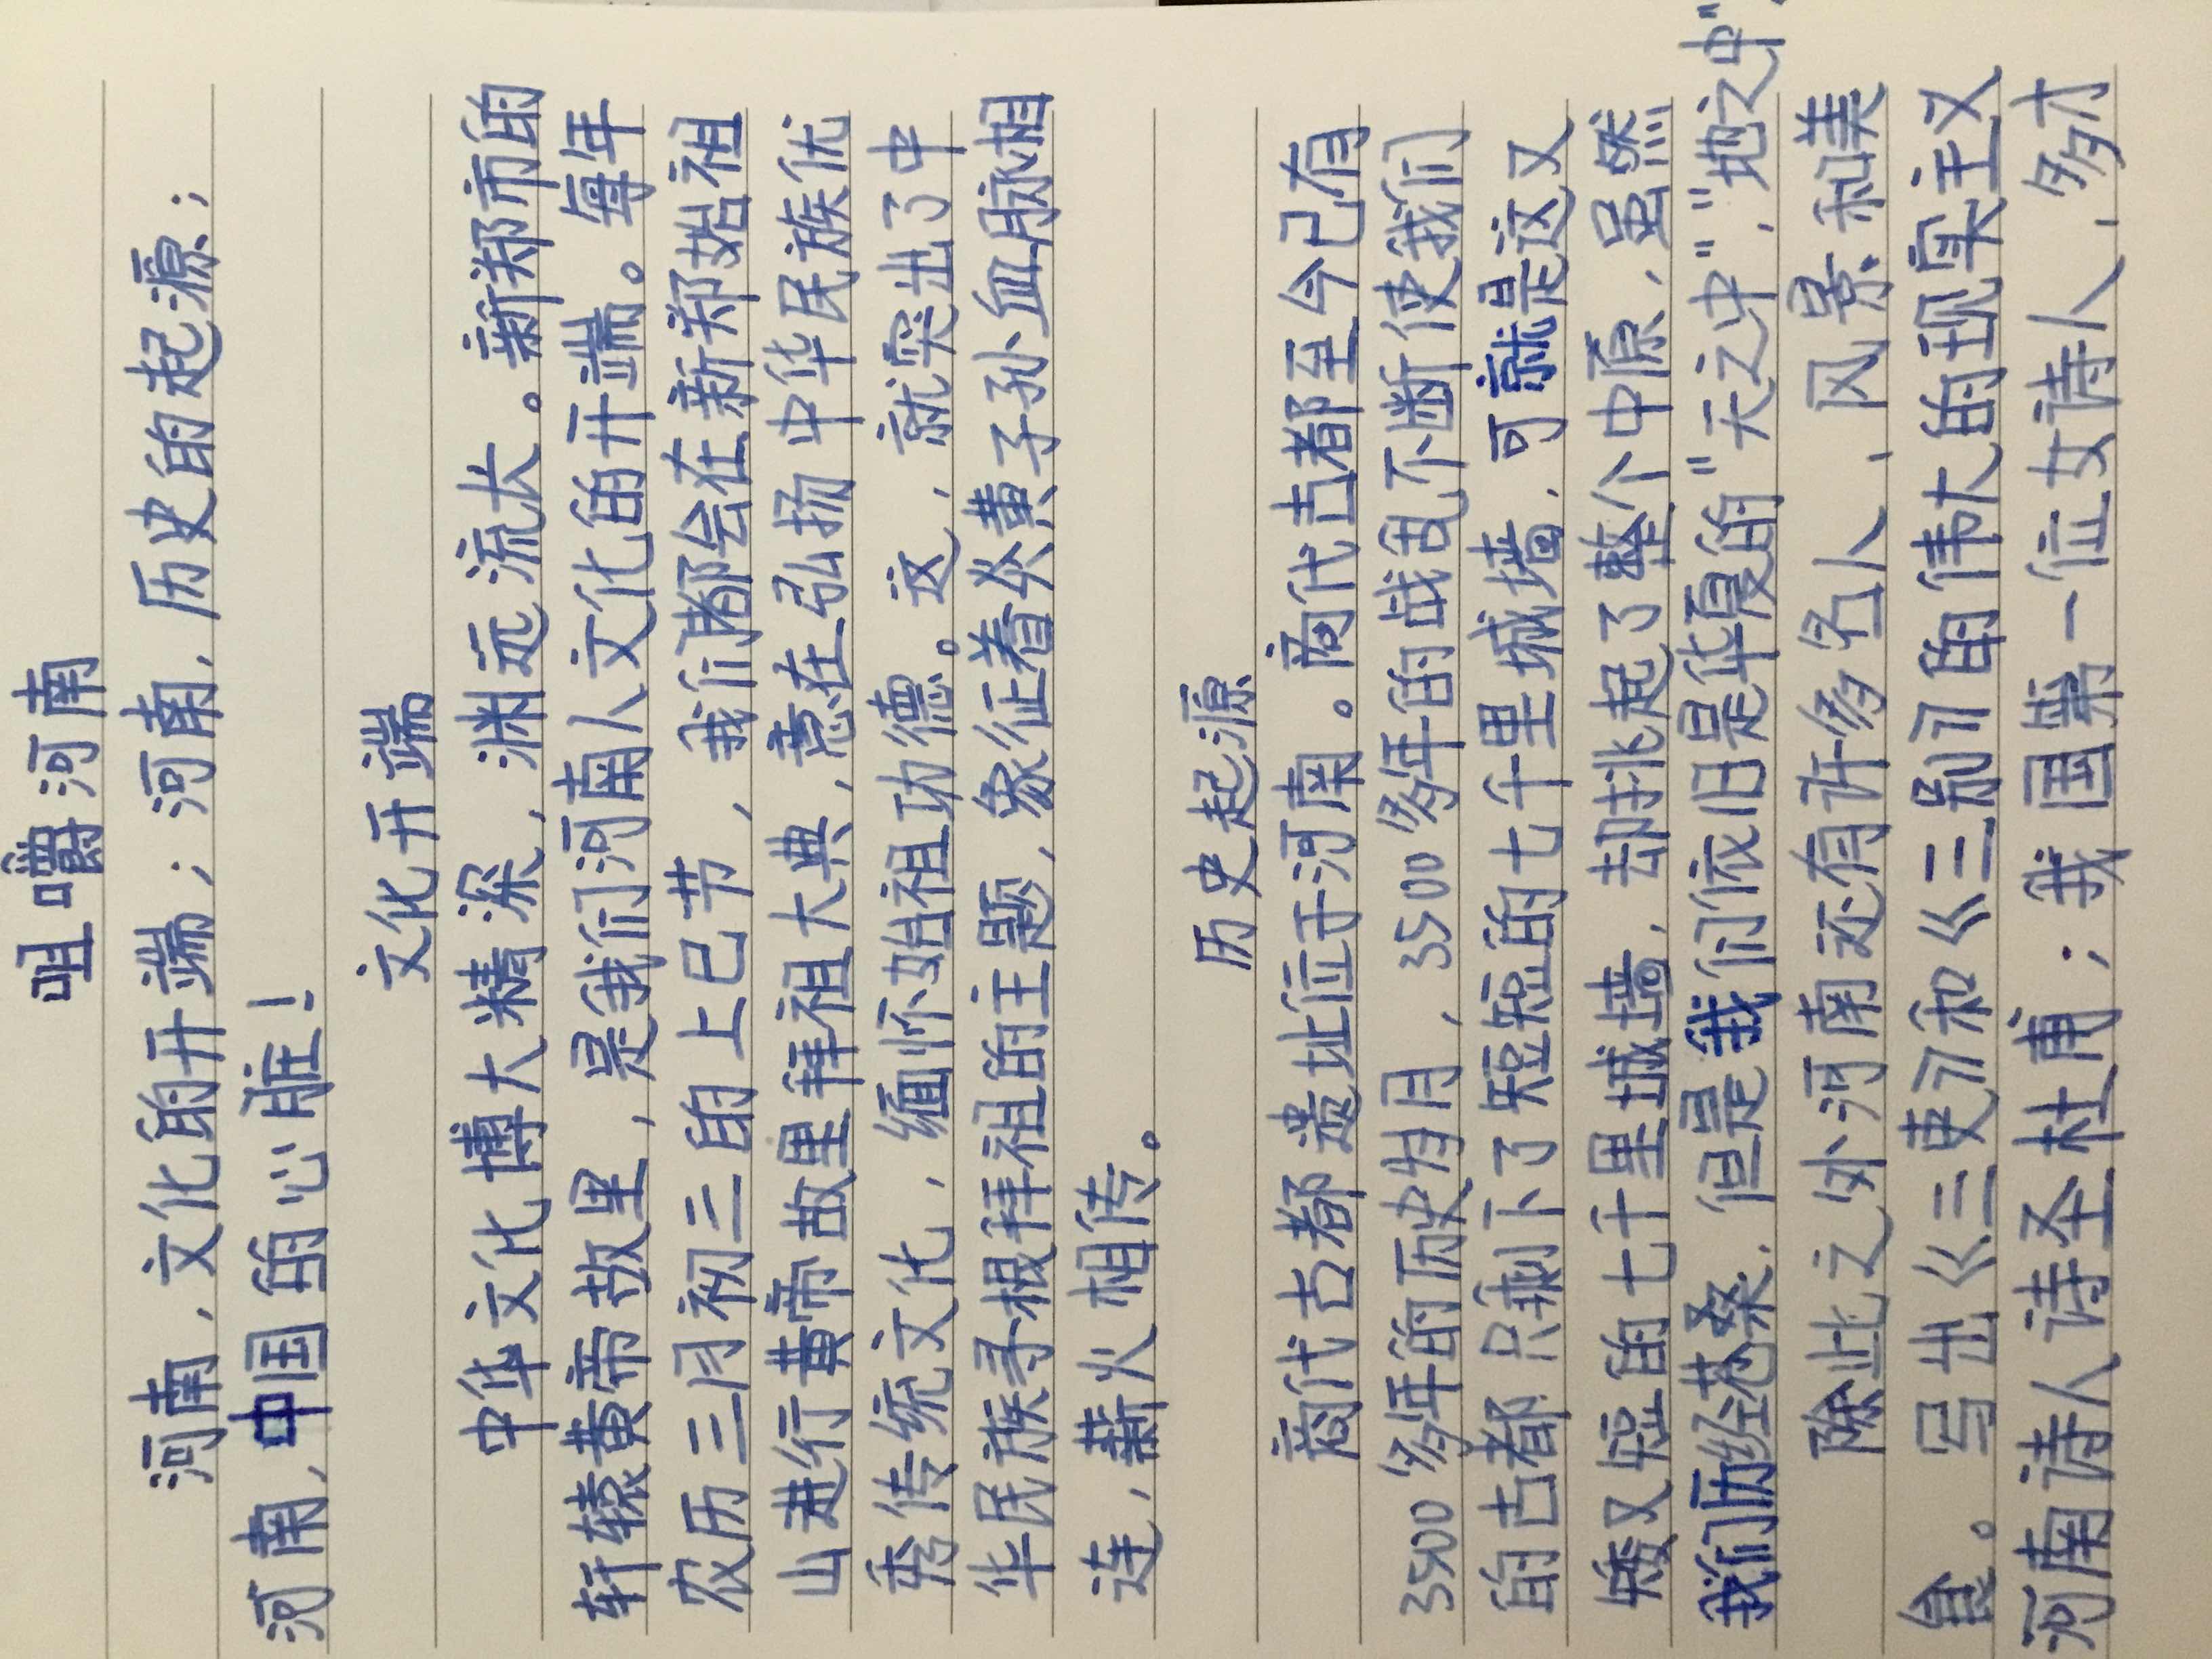 咀嚼河南
河南，文化的开端；河南，历史的起源；
河南，中国的心脏！
文化开端
中华文化博大精深，渊远流长。新郑市的
轩辕黄帝故里，是我们河南人文化的开端。每年
农历三月初三的上巳节，我们都会在新郑始祖
山进行黄帝故里拜祖大典，意在弘扬中华民族优
秀传统文化，缅怀始祖功德。这，就突出了中
华民族寻根拜祖的主题，象征着炎黄子孙血脉相
连，薪火相传。
历史起源
商代古都遗址位于河南。商代古都至今已有
3500多年的历史岁月，3500多年的战乱不断使我们
的古都只剩下了短短的七千里城墙，可就是这又
矮又短的七千里城墙，却挑起了整个中原，虽然
我们历经苍桑，但是我们依旧是华夏的"天之中"，"地之中"，
除此之外河南还有许多名人、风景和美
食。写出《三吏》和《三别》的伟大的现实主义
河南诗人诗圣杜甫；我国第一位女诗人、多才